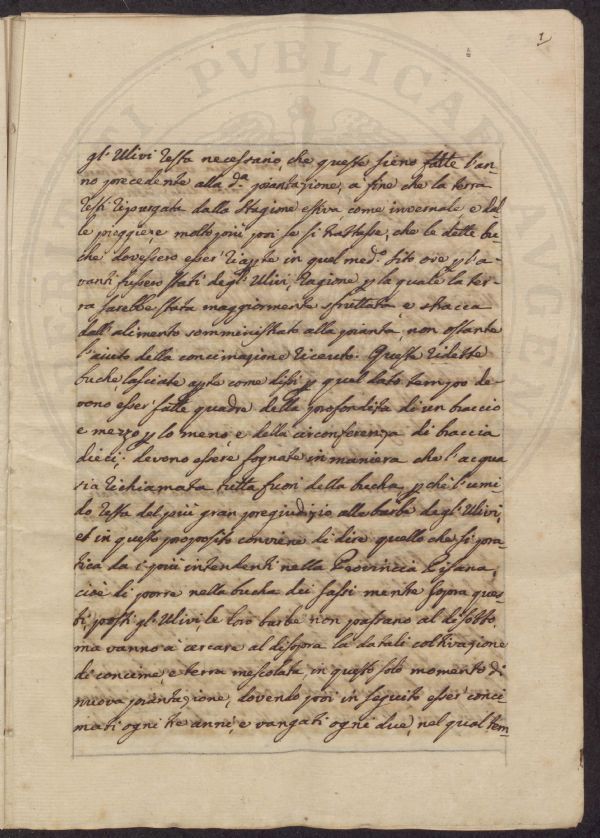 1
gl'Ulivi resta necessario che queste sieno fatte l'an-
no precedente alla d.ª piantazione, a fine che la terra
resti ripurgata dalla Stagione estiva, come invernale, e dal
le pioggie, e molto più poi se si trattasse, che le dette bu-
che dovessero esser riapte in quel med.º sito ove p l'a-
vanti fussero stati degl'Ulivi, ragione p la quale la ter-
ra sarebbe stata maggiormente sfruttata, e stracca
dall'alimento somministrato alla pianta, non ostante
l'aiuto della concimazione ricevuto. Queste ridette
buche, lasciate apte come dissi p quel dato tempo de-
vono esser fatte quadre della profondità di un braccio
e mezzo p lo meno, e della circonferenza di braccia
dieci; devono essere fognate in maniera che l'acqua
sia richiamata tutta fuori della bucha, p che l'umi-
do resta del più gran pregiudizio alle barbe degl'Ulivi,
et in questo proposito conviene di dire quello che si pra-
tica da i più intendenti nella Provincia Pisana,
cioè di porre nella bucha dei sassi mentre sopra ques
ti, posti gl'Ulivi, le loro barbe non passano al disotto,
ma vanno a cercare al disopra la da tali coltivazione
di concime, e terra mescolata, in questo solo momento di
nuova piantazione, dovendo poi in seguito esser conci
mati ogni tre anni, e vangati ogni due, nel qual tem-